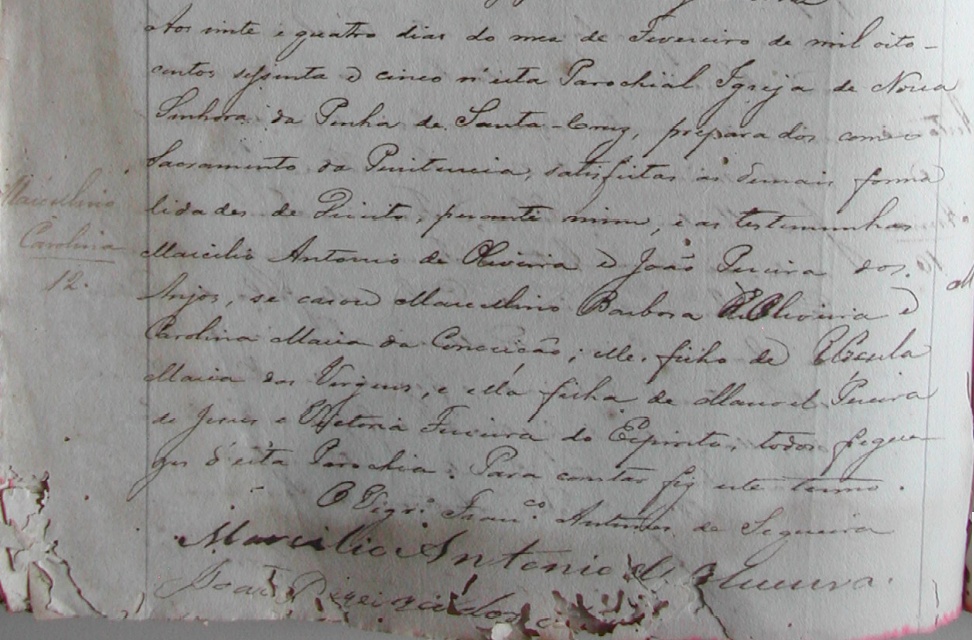 Aos vinte e quatro dias do mez de Fevereiro de mil oito-
centos sessenta e cinco n'esta Parochial Igreja de Nossa
Senhora da Penha de Santa-Cruz, preparados com o
Sacramento da Penitencia, satisfeitas as demais forma
lidades de Direito, perante mim, e as testemunhas
Marcilio Antonio de Oliveira e João Pereira dos
Anjos, se casou Marcellino Barbosa de Oliveira e
Carolina Maria da Conceicão; elle, filho de Ursula
Maria das Virgens, e ella filha de Manoel Pereira
de Jesus e Victoria do Espirito, todos fregue-
zes d'esta Parochia. Para constar fiz este termo.
O Vigr.º Fran.co Antunes de Sequeira
Marcilio Antonio d. Oliveira.
João Pereira dos
Marcellino
Carolina
12.